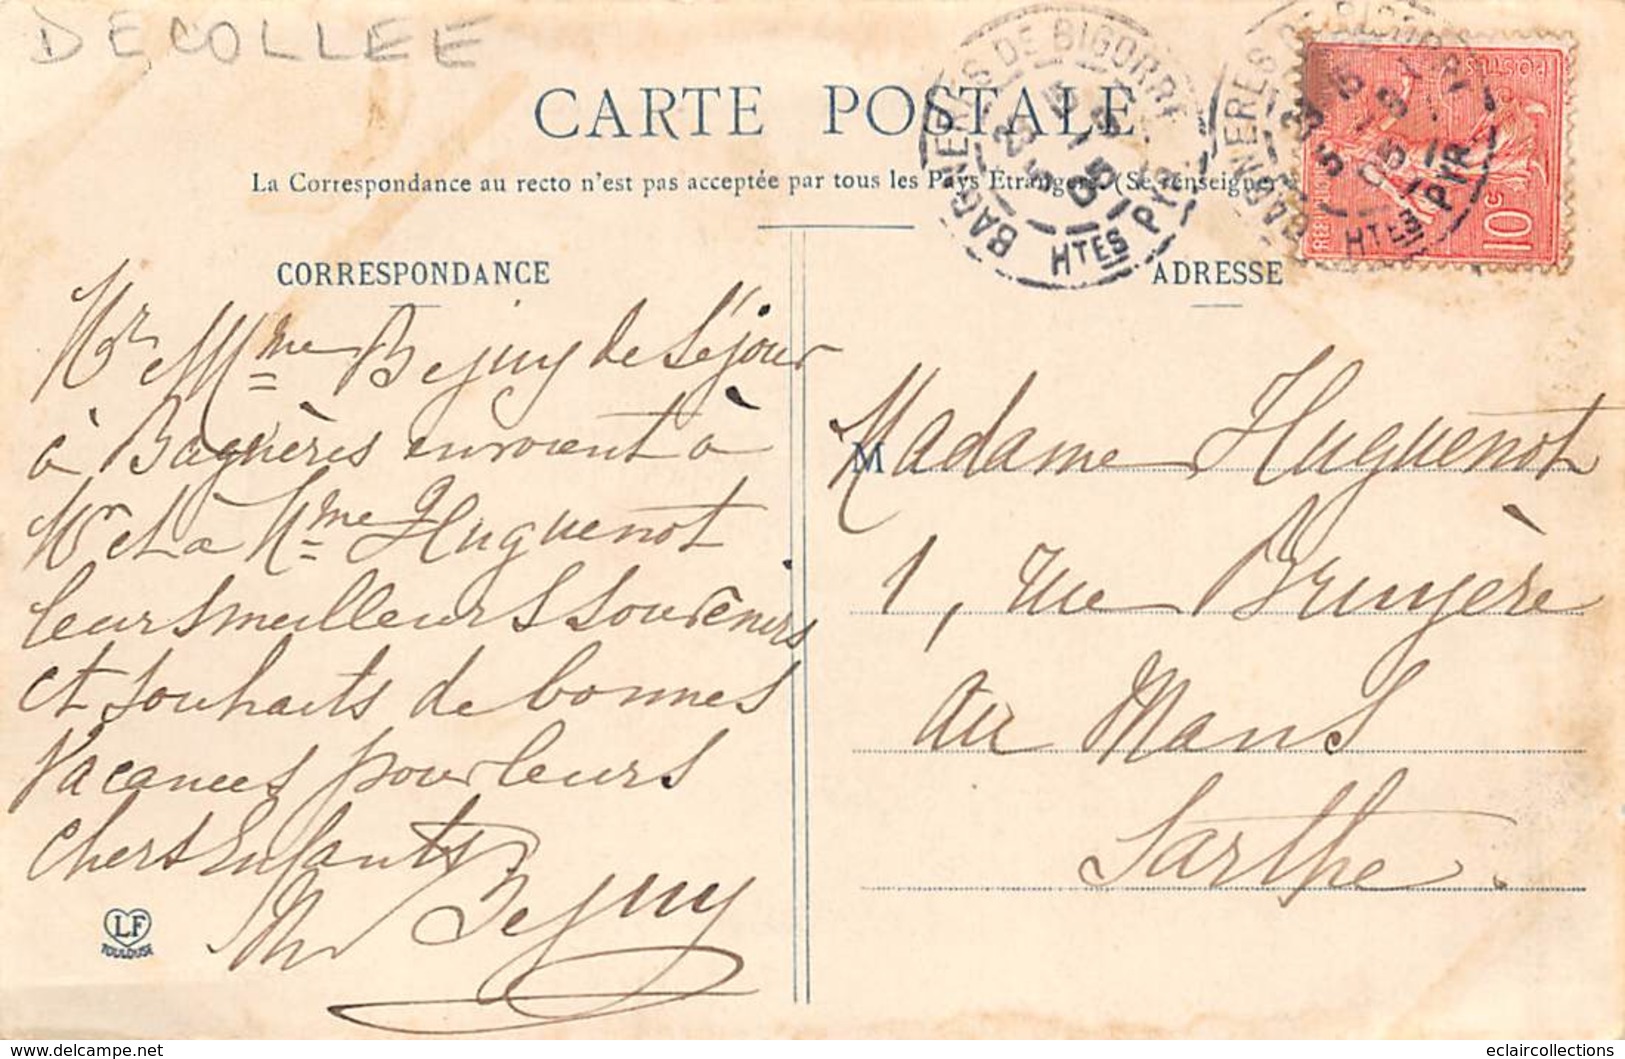 DECOLLEE
CARTE POSTALE
La Correspondance au recto n'est pas acceptée par tous les Pays Étrangers. (Se renseigner
BAGNERES DE BIGORRE
Htes PYR
BAGNERES DE BIGORRE
Htes PYR
POSTES
10c
CORRESPONDANCE
Mr e Mme Bejuy de Séjour
à Bagnères envoient à
Mr et à Mme Huguenot
leurs meilleurs souvenirs
et souhaits de bonnes
Vacances pour leurs
chers Enfants
Mr Bejuy
LF
TOULOUSE
ADRESSE
Madame Huguenot
1, rue Bruyère
au Mans
Sarthe.
eclaircollections
www.delcampe.net